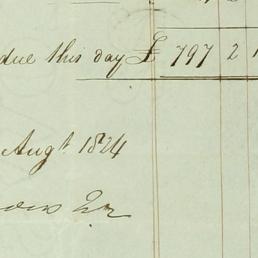 due this day £ 797 2
Augt 1824